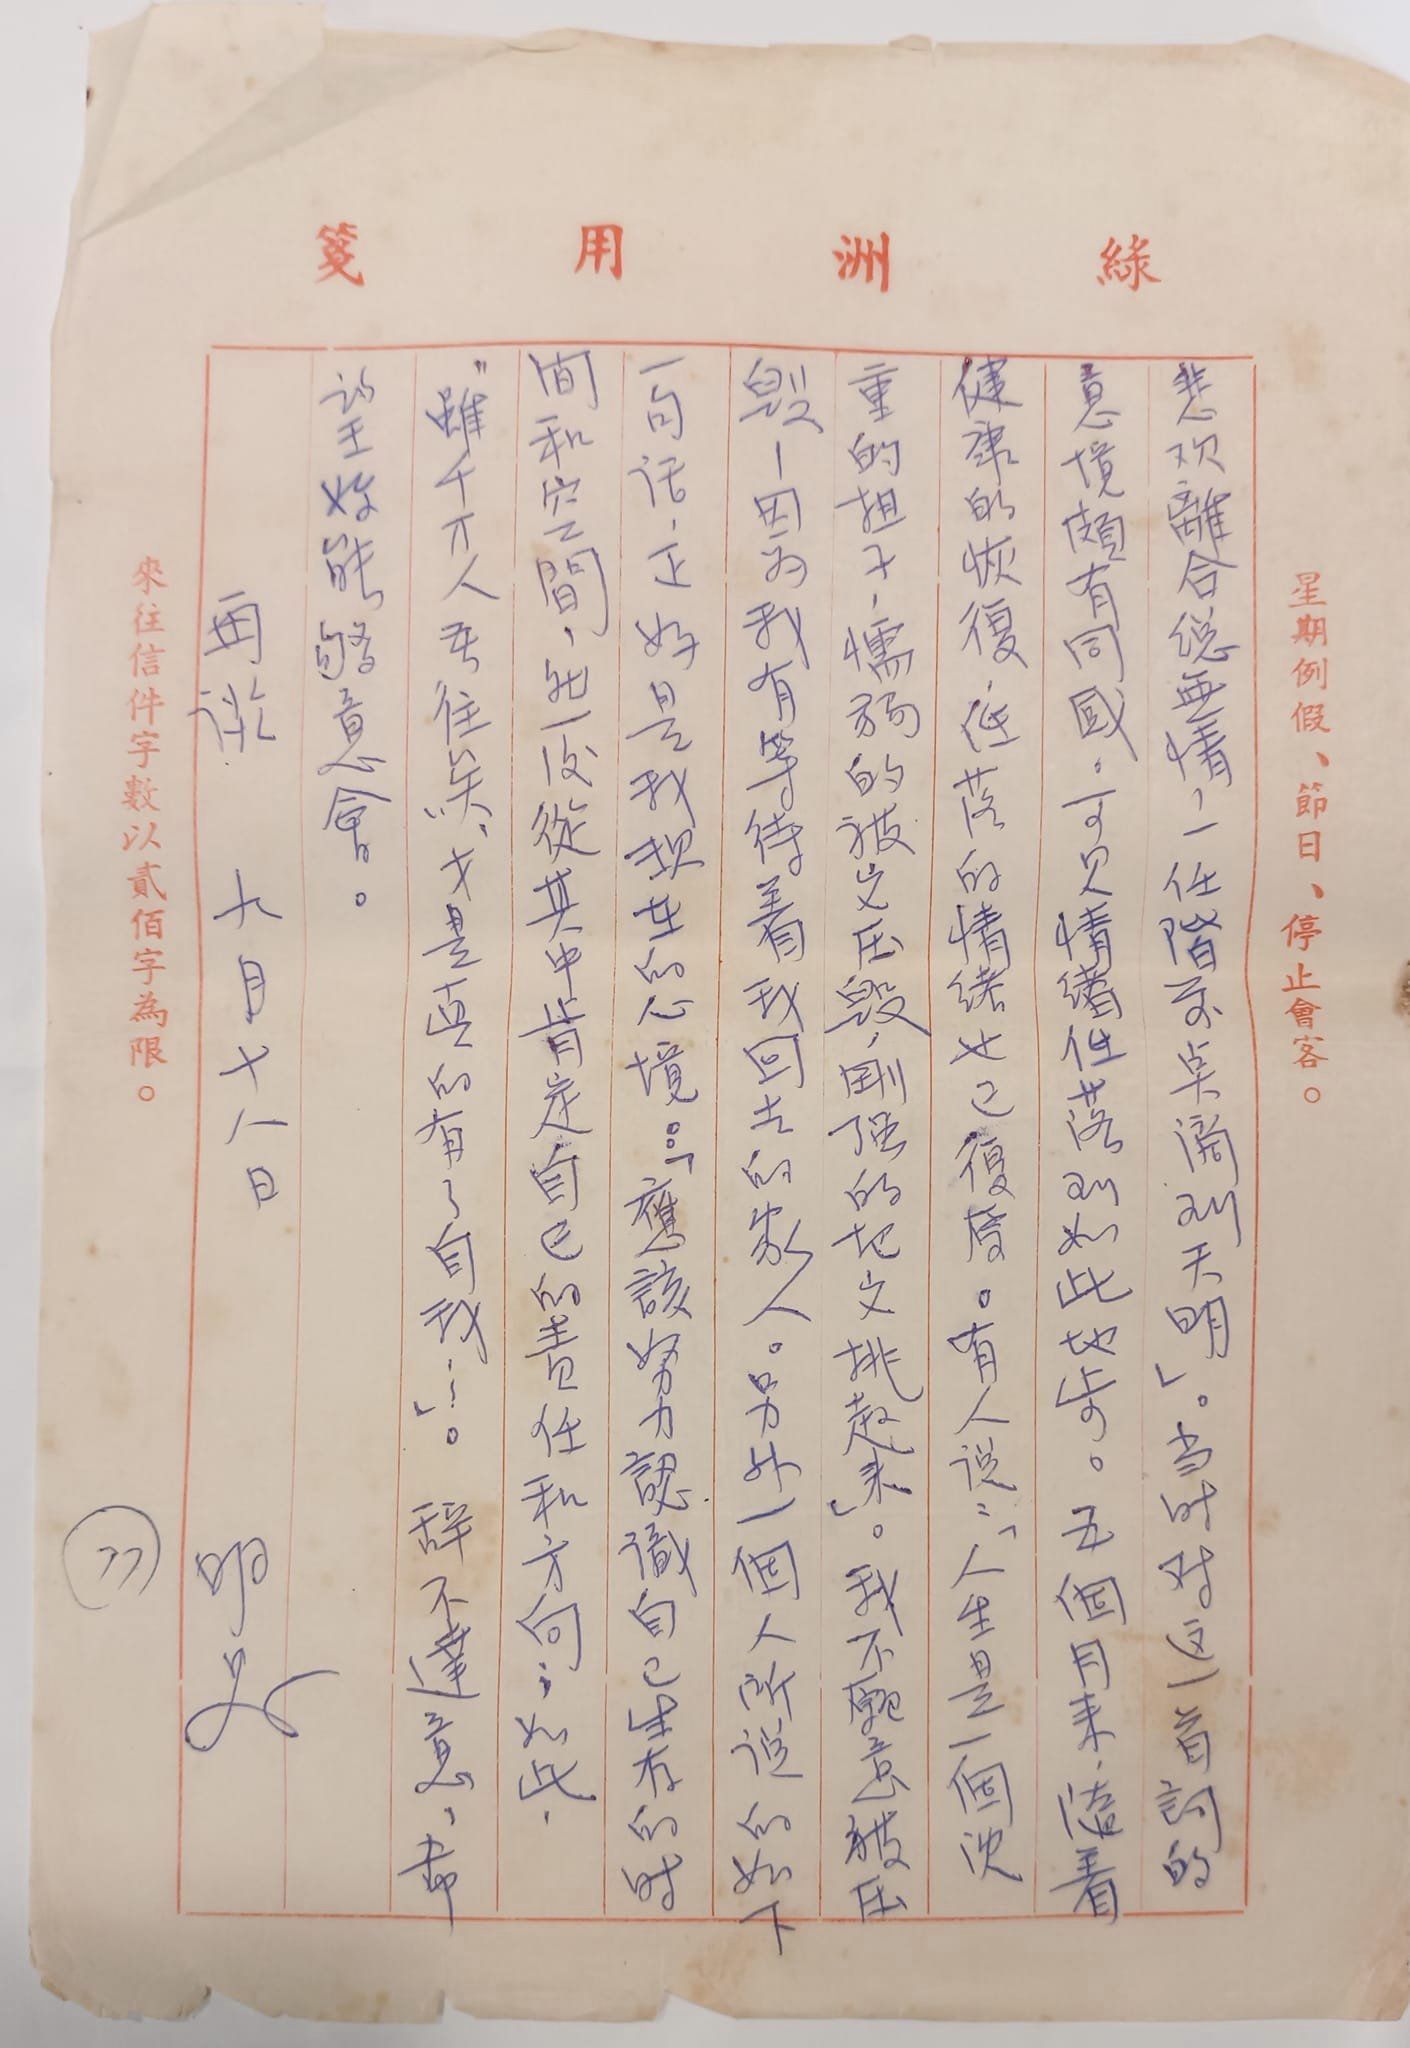 綠洲用箋
星期例假、節日、停止會客。
悲欢離合總無情，一任階前点滴到天明」。当时对这一首詞的
意境頗有同感。可見情緒低落到如此地步。五個月来，随着
健康的恢復，低落的情緒也已復原。有人说：「人生是一個沈
重的担子，懦弱的被它压毀，剛强的把它挑起来」。我不願意被压
毀—因为我有等待着我回去的家人。另外一個人所说的如下
一句话，正好是我现在的心境：「應該努力認識自己生存的时
间和空間，然後從其中肯定自己的責任和方向；如此，
〝雖千万人吾往矣〞，才是真的有了自我…」。辞不達意，希
望妳能够意會。
再談 九月十八日 明
來往信件字數以貳佰字為限。
77